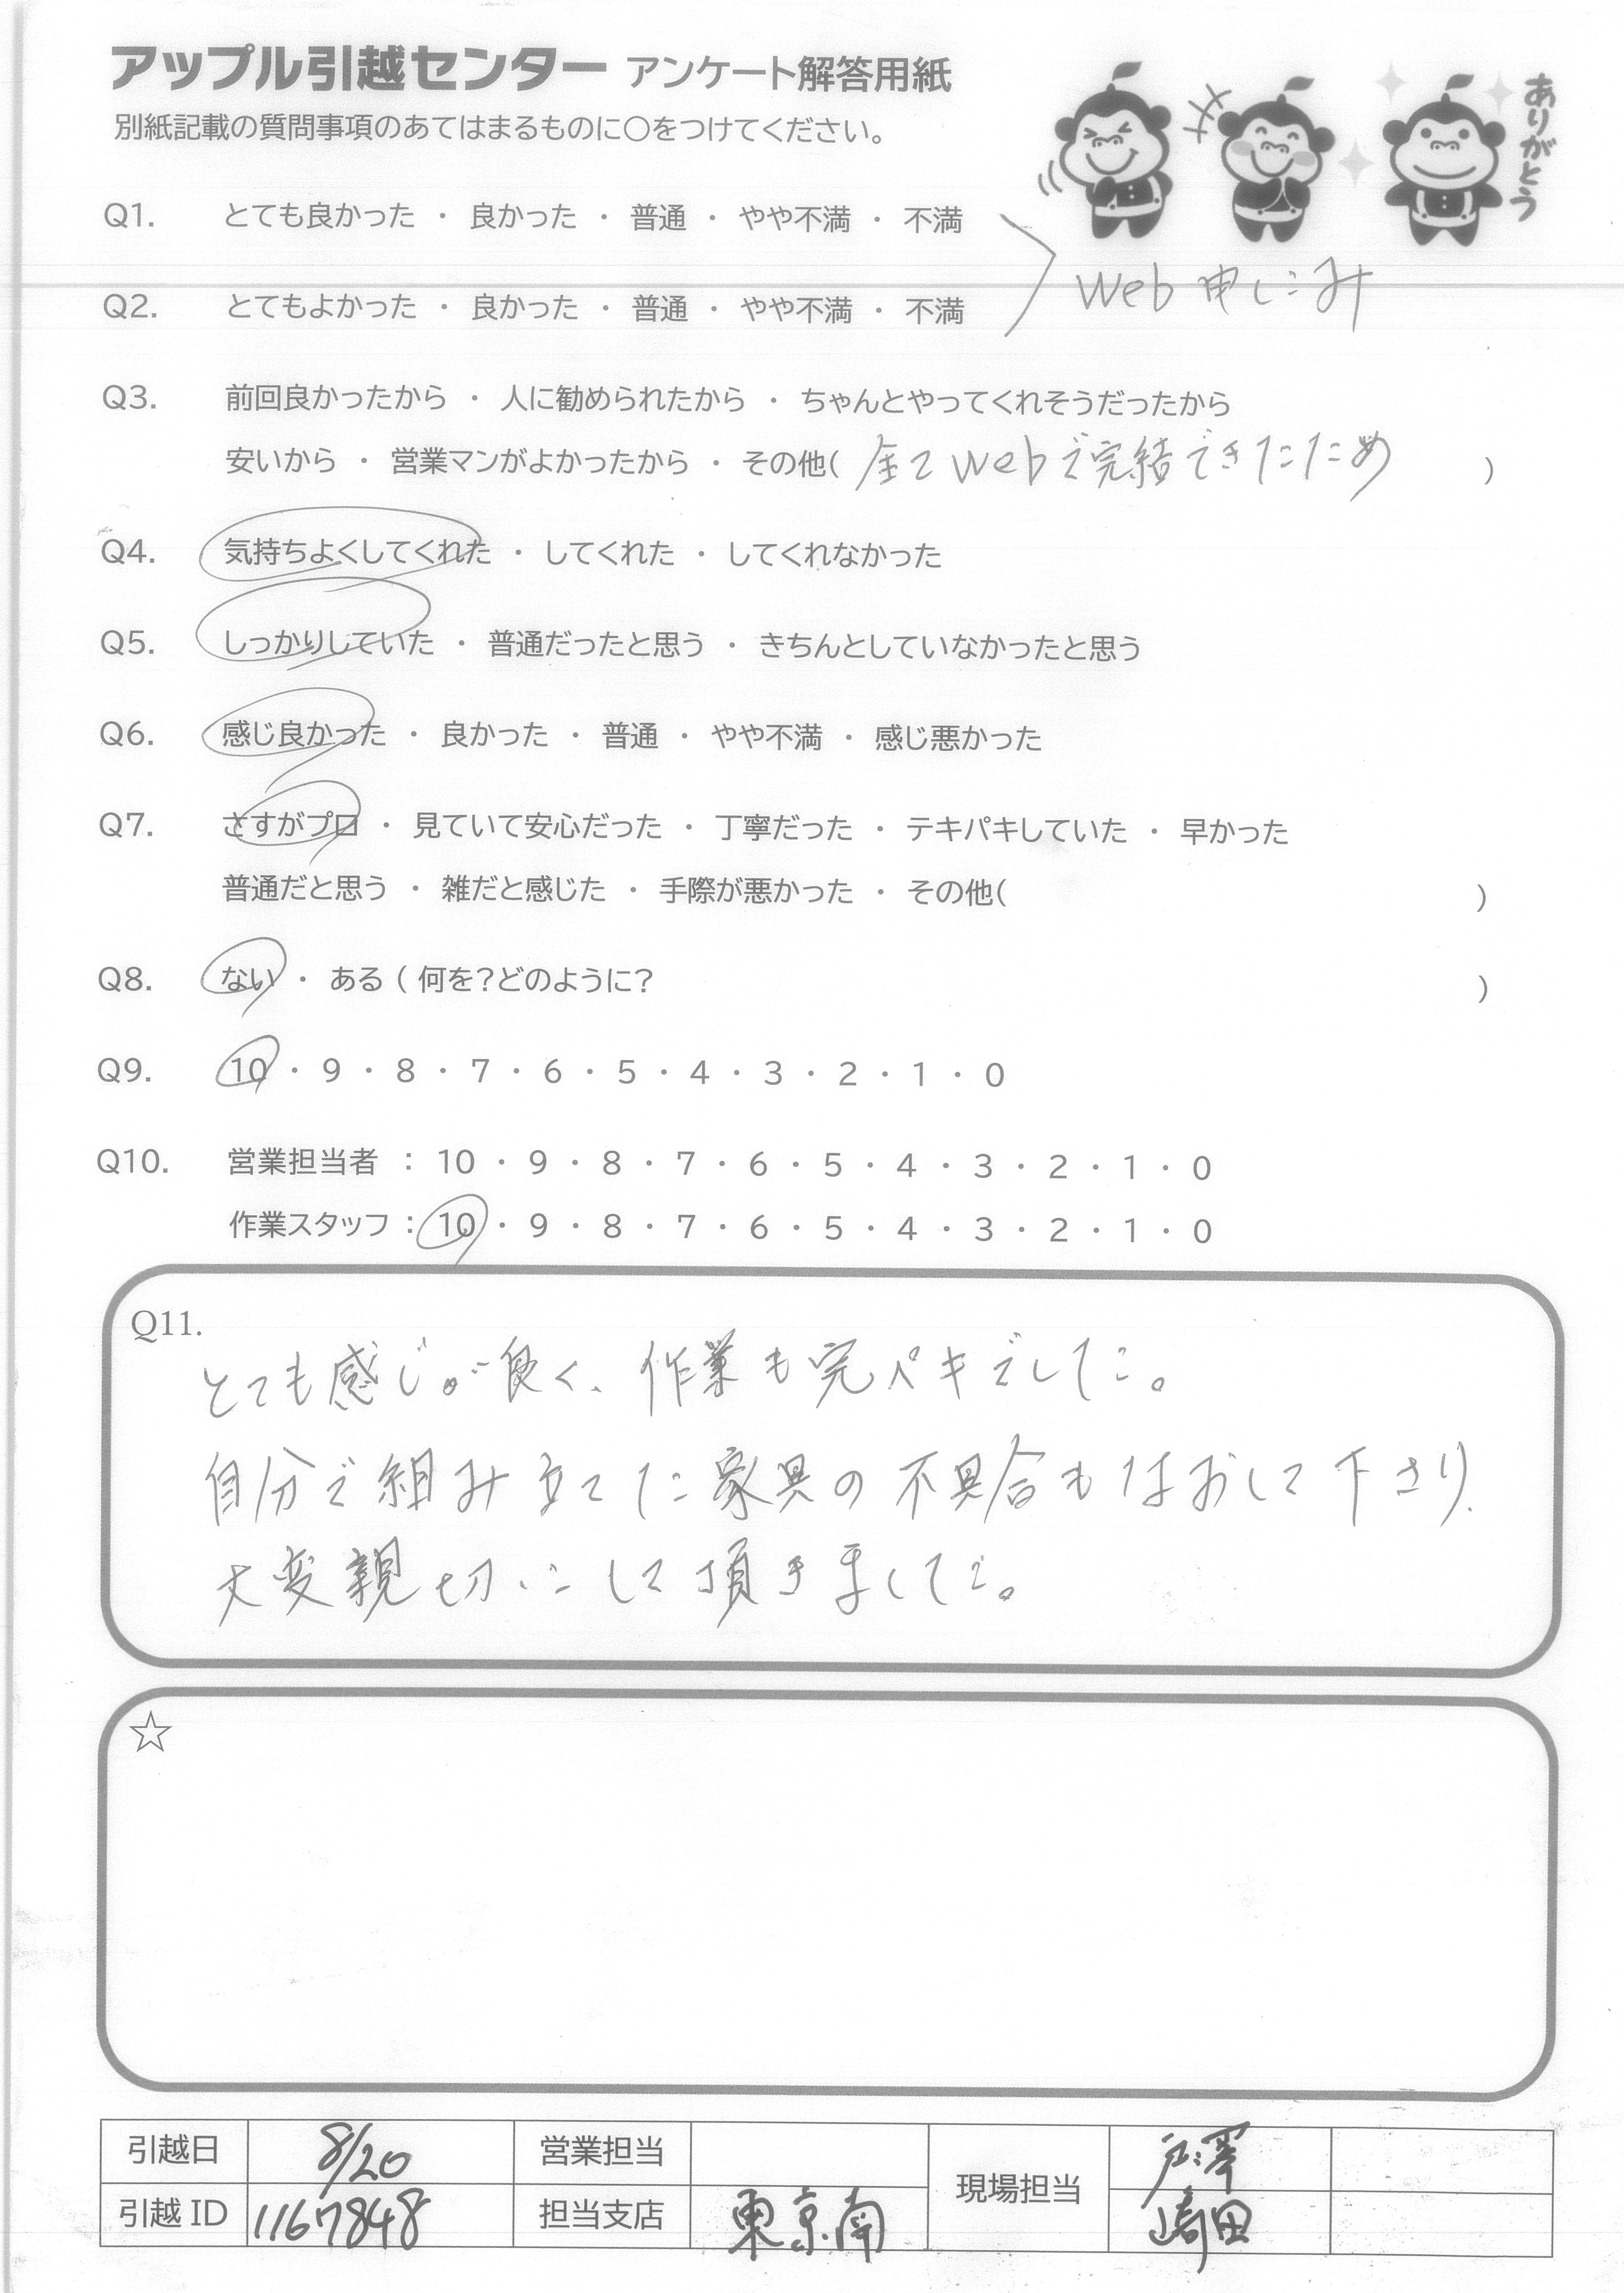 アップル引越センター アンケート解答用紙
別紙記載の質問事項のあてはまるものに○をつけてください。
ありがとう
Q1. とても良かった ・ 良かった ・ 普通 ・ やや不満 ・ 不満
Web申しこみ
Q2. とてもよかった ・ 良かった ・ 普通 ・ やや不満 ・ 不満
Q3. 前回良かったから ・ 人に勧められたから ・ ちゃんとやってくれそうだったから
安いから ・ 営業マンがよかったから ・ その他( 全てwebで完結できたため )
Q4. 気持ちよくしてくれた ・ してくれた ・ してくれなかった
Q5. しっかりしていた ・ 普通だったと思う ・ きちんとしていなかったと思う
Q6. 感じ良かった ・ 良かった ・ 普通 ・ やや不満 ・ 感じ悪かった
Q7. さすがプロ ・ 見ていて安心だった ・ 丁寧だった ・ テキパキしていた ・ 早かった
普通だと思う ・ 雑だと感じた ・ 手際が悪かった ・ その他( )
Q8. ない ・ ある ( 何を?どのように? )
Q9. 10 ・ 9 ・ 8 ・ 7 ・ 6 ・ 5 ・ 4 ・ 3 ・ 2 ・ 1 ・ 0
Q10. 営業担当者 : 10 ・ 9 ・ 8 ・ 7 ・ 6 ・ 5 ・ 4 ・ 3 ・ 2 ・ 1 ・ 0
作業スタッフ : 10 ・ 9 ・ 8 ・ 7 ・ 6 ・ 5 ・ 4 ・ 3 ・ 2 ・ 1 ・ 0
Q11.
とても感じが良く、作業も完ペキでした。
自分で組み立てた家具の不具合もなおして下さり、
大変親切にして頂きました。
☆
引越日 8/20 営業担当 現場担当 戸澤
引越 ID 1167848 担当支店 東京南 崎田